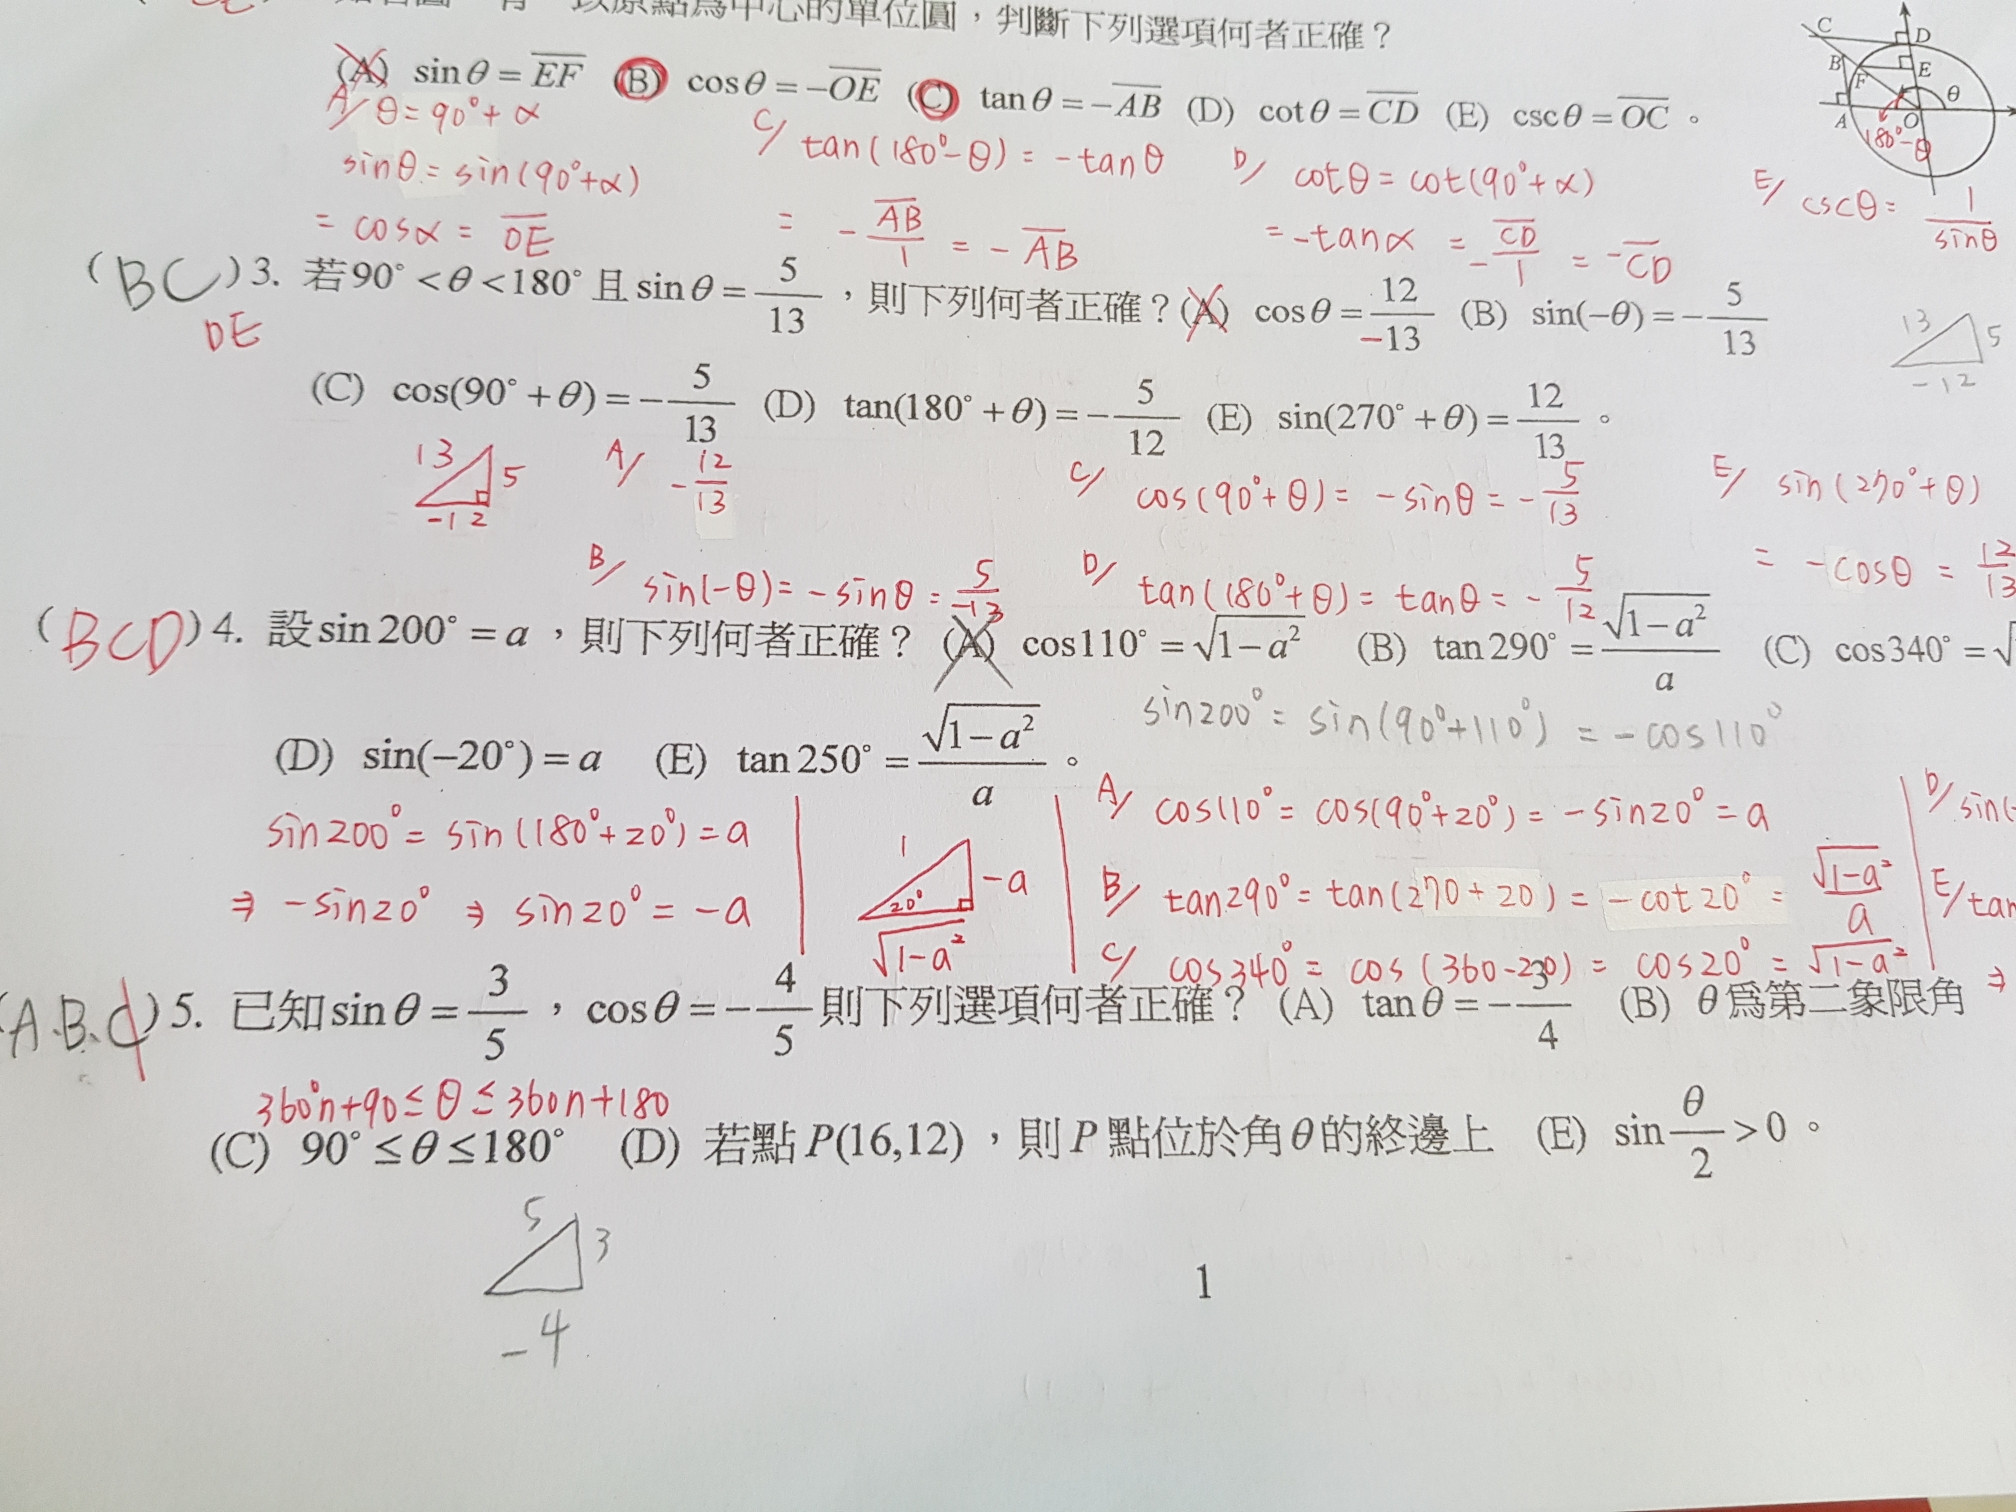 以原點為中心的單位圓，判斷下列選項何者正確？
(A) sinθ = EF (B) cosθ = −OE (C) tanθ = −AB (D) cotθ = CD (E) cscθ = OC 。
C D B F E θ A O 180°-θ
A/ θ = 90° + α
sinθ = sin(90°+α)
= cosα = OE
C/ tan(180°-θ) = -tanθ
= - AB/1 = - AB
D/ cotθ = cot(90°+α)
= -tanα = - CD/1 = -CD
E/ cscθ = 1/sinθ
(BC DE) 3. 若90° < θ < 180° 且 sinθ = 5/13 ，則下列何者正確？(A) cosθ = 12/-13 (B) sin(−θ) = − 5/13
13 5 -12
(C) cos(90° + θ) = − 5/13 (D) tan(180° + θ) = − 5/12 (E) sin(270° + θ) = 12/13 。
13 5 -12
A/ - 12/13
C/ cos(90°+θ) = -sinθ = - 5/13
E/ sin(270°+θ)
= -cosθ = 12/13
B/ sin(-θ) = -sinθ = 5/-13
D/ tan(180°+θ) = tanθ = - 5/12
(BCD) 4. 設 sin 200° = a ，則下列何者正確？ (A) cos110° = √1−a² (B) tan 290° = √1−a²/a (C) cos340° = √
sin200° = sin(90°+110°) = -cos110°
(D) sin(−20°) = a (E) tan 250° = √1−a²/a 。
sin200° = sin(180°+20°) = a
⇒ -sin20° ⇒ sin20° = -a
1 -a 20° √1-a²
A/ cos110° = cos(90°+20°) = -sin20° = a
B/ tan290° = tan(270+20) = -cot20° = √1-a²/a
C/ cos340° = cos(360-20) = cos20° = √1-a²
D/ sin(
E/ tan
⇒
(A.B.C) 5. 已知 sinθ = 3/5 ， cosθ = − 4/5 則下列選項何者正確？ (A) tanθ = − 3/4 (B) θ 為第二象限角
360°n+90 ≤ θ ≤ 360n+180
(C) 90° ≤ θ ≤ 180° (D) 若點 P(16,12) ，則 P 點位於角 θ 的終邊上 (E) sin θ/2 > 0 。
5 3 -4
1